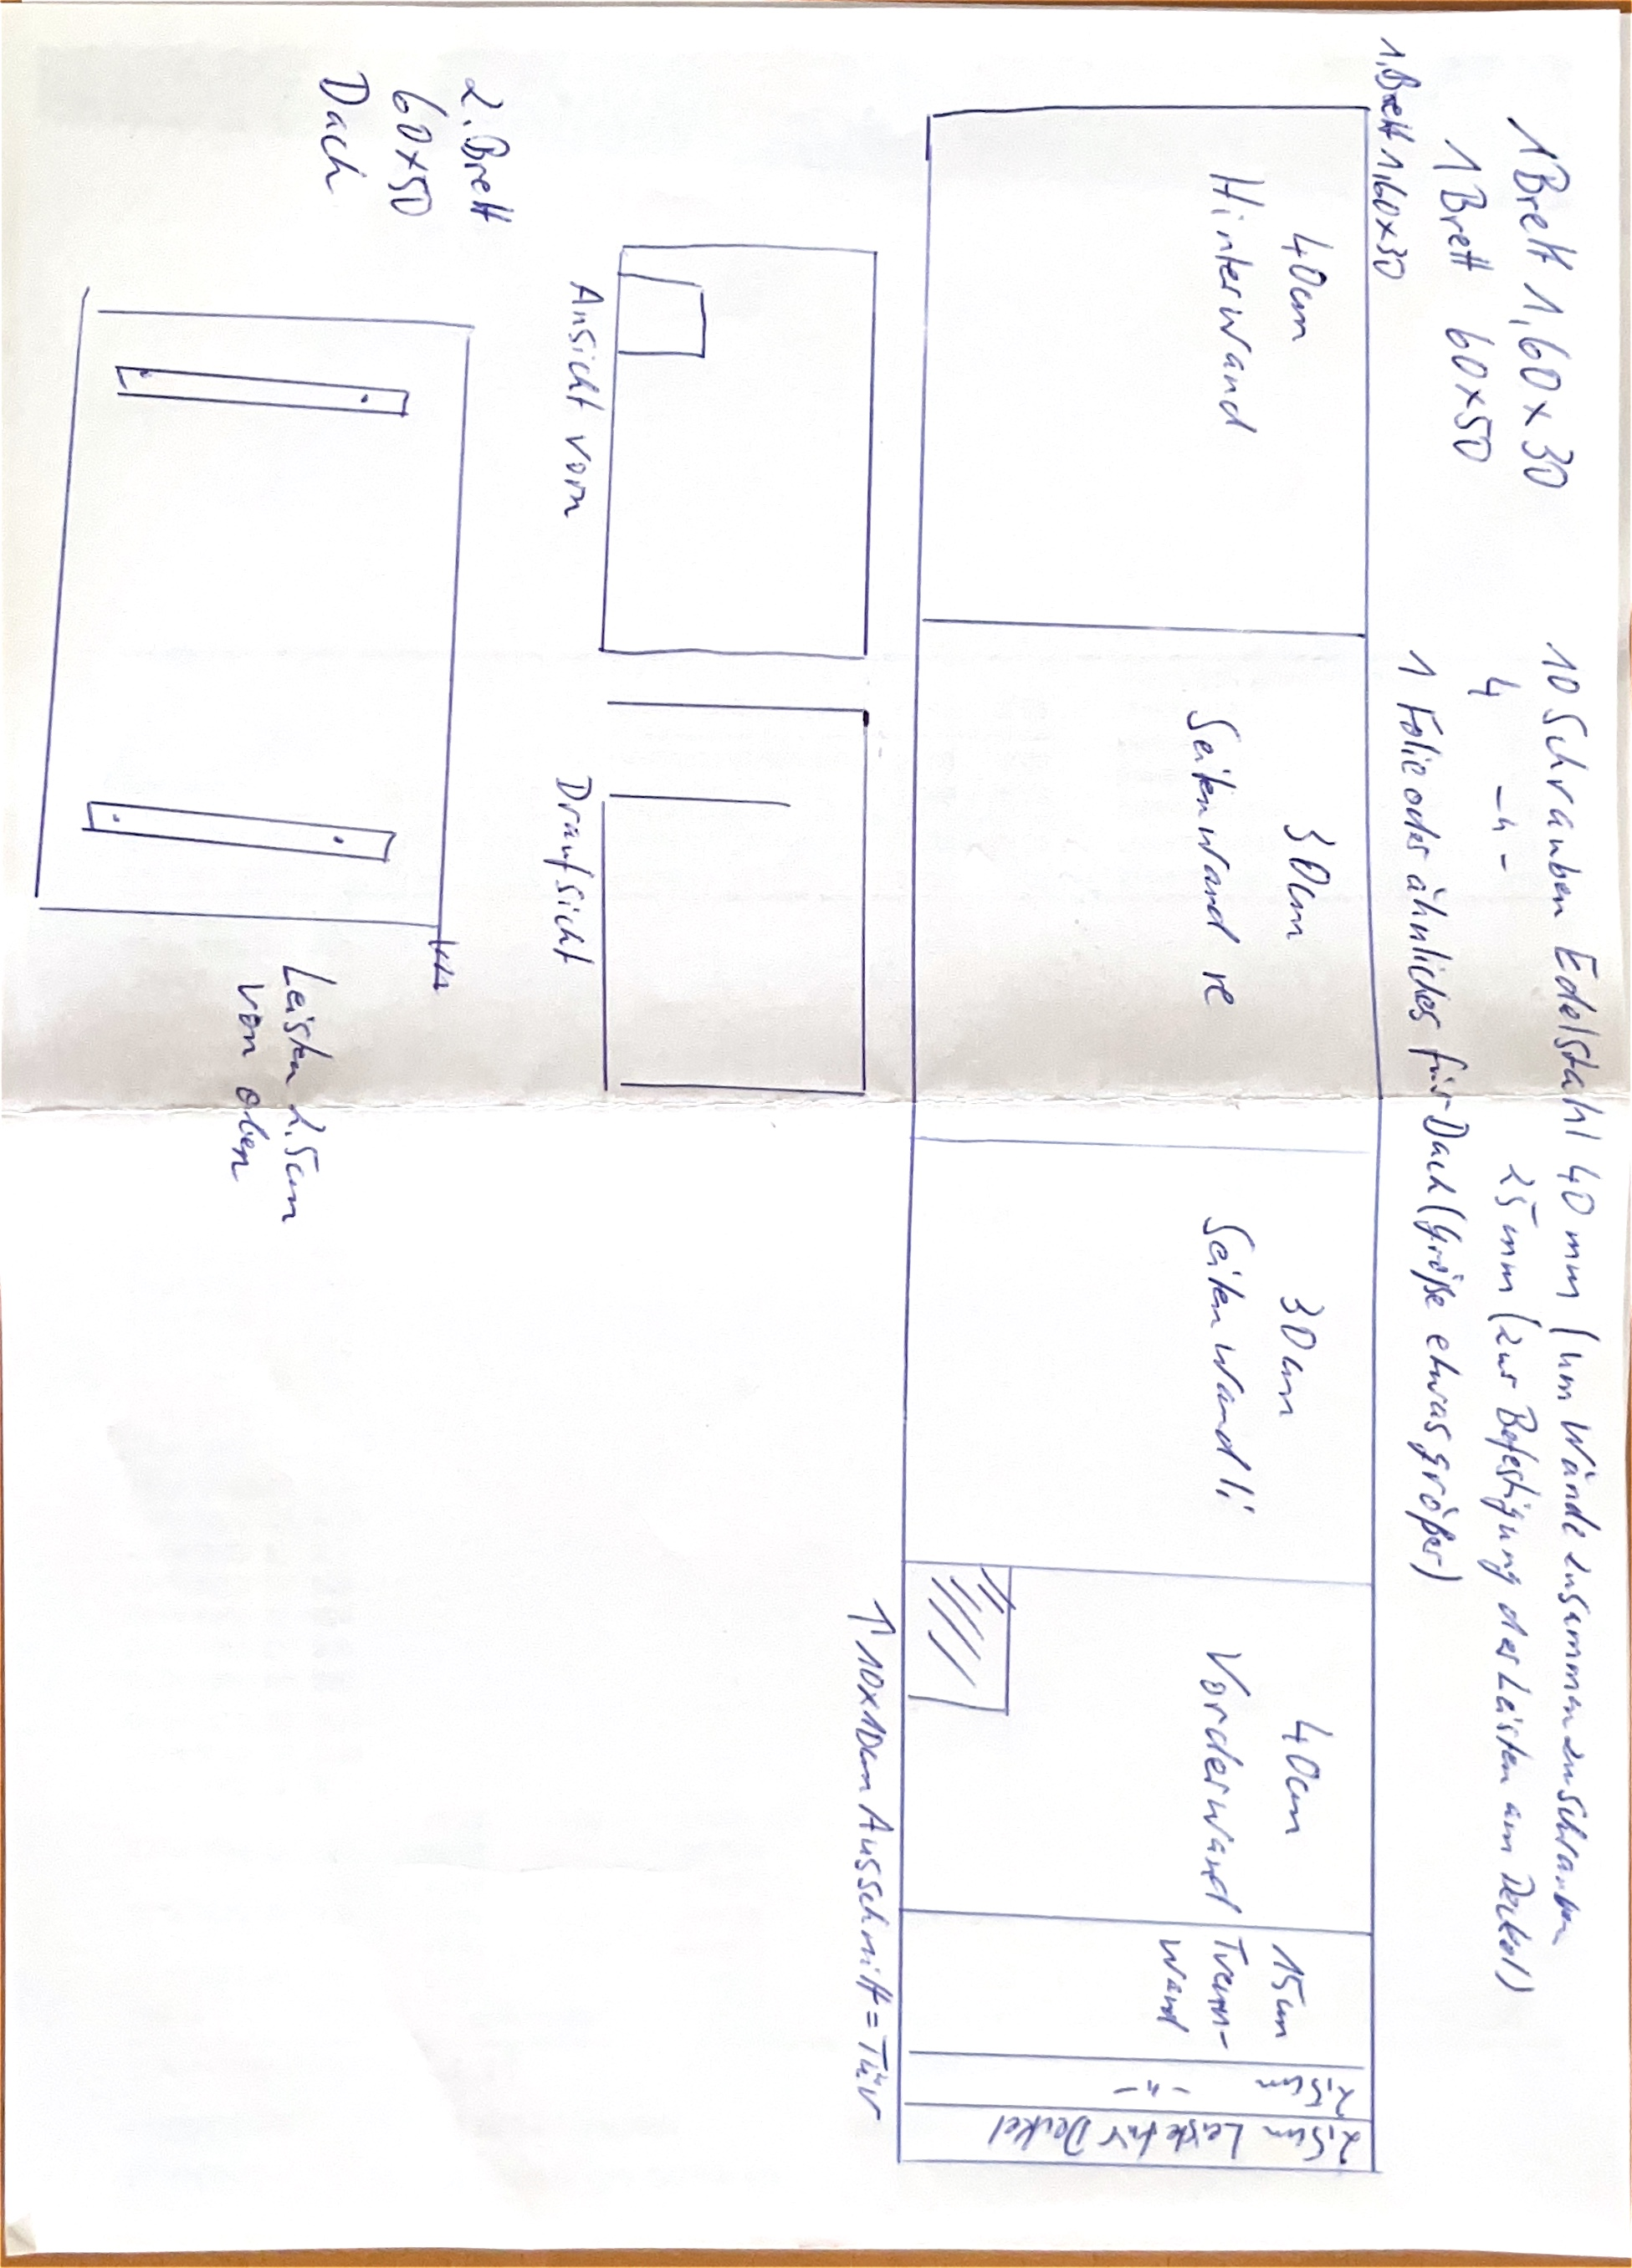 1 Brett 1,60 x 30
1 Brett 60 x 50
10 Schrauben Edelstahl 40 mm (um Wände zusammenzuschrauben
4 -"- 25 mm (zur Befestigung der Leisten am Deckel)
1 Folie oder ähnliches für Dach (Größe etwas größer)
1. Brett 1,60 x 30
40cm
Hinterwand
30cm
Seitenwand re
30cm
Seitenwand li
40cm
Vorderwand
15cm
Trenn-
wand
2,5cm
-"-
2,5cm Leiste für Deckel
↑ 10x10cm Ausschnitt = Tür
Ansicht vorn
Draufsicht
2. Brett
60x50
Dach
Leisten 2.5cm
von oben